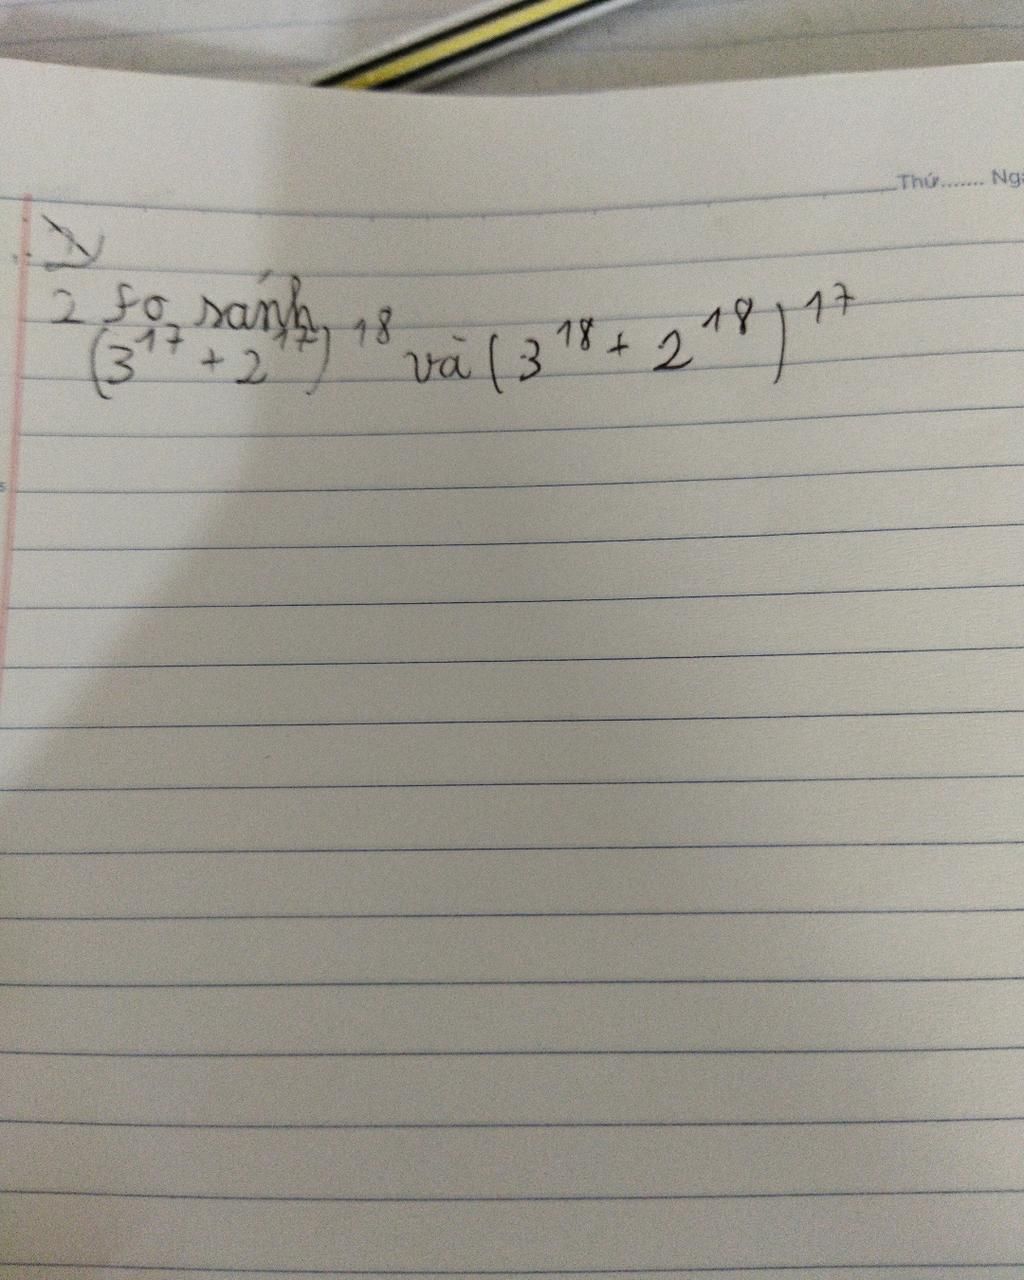 Thứ....... Ng
2 so sánh
(3^17 + 2^17)^18 và (3^18 + 2^18)^17